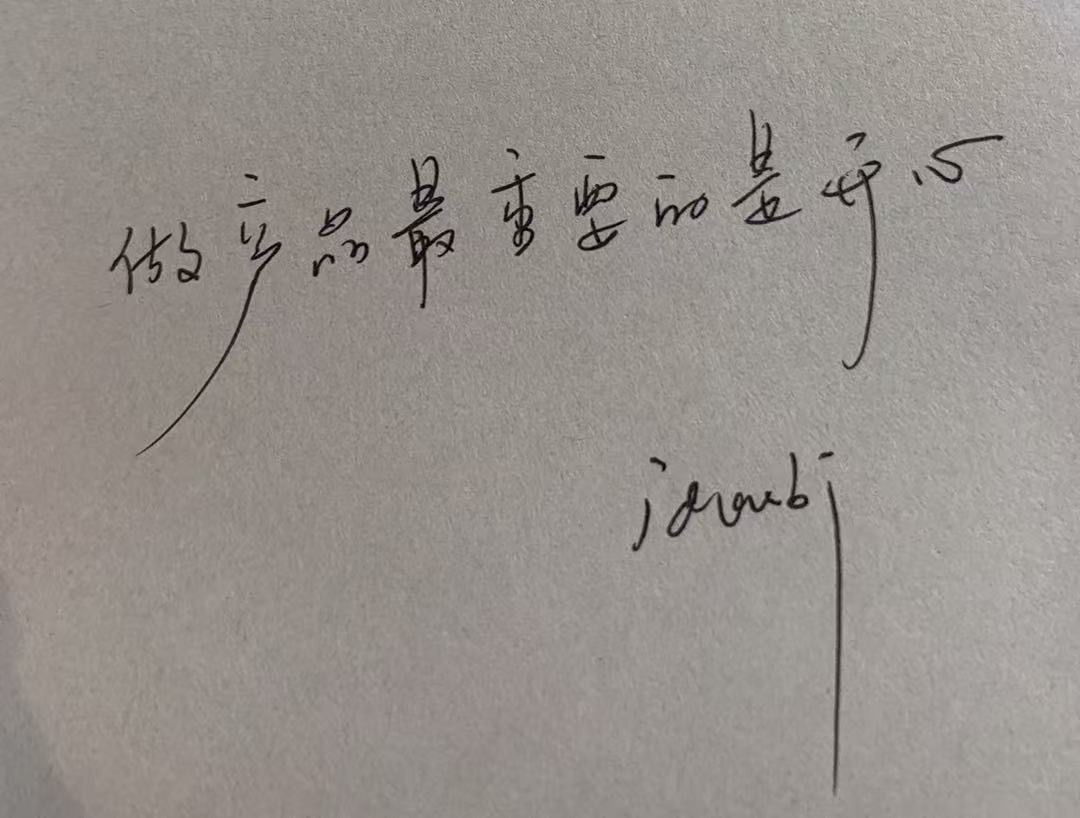 做产品最重要的是开心